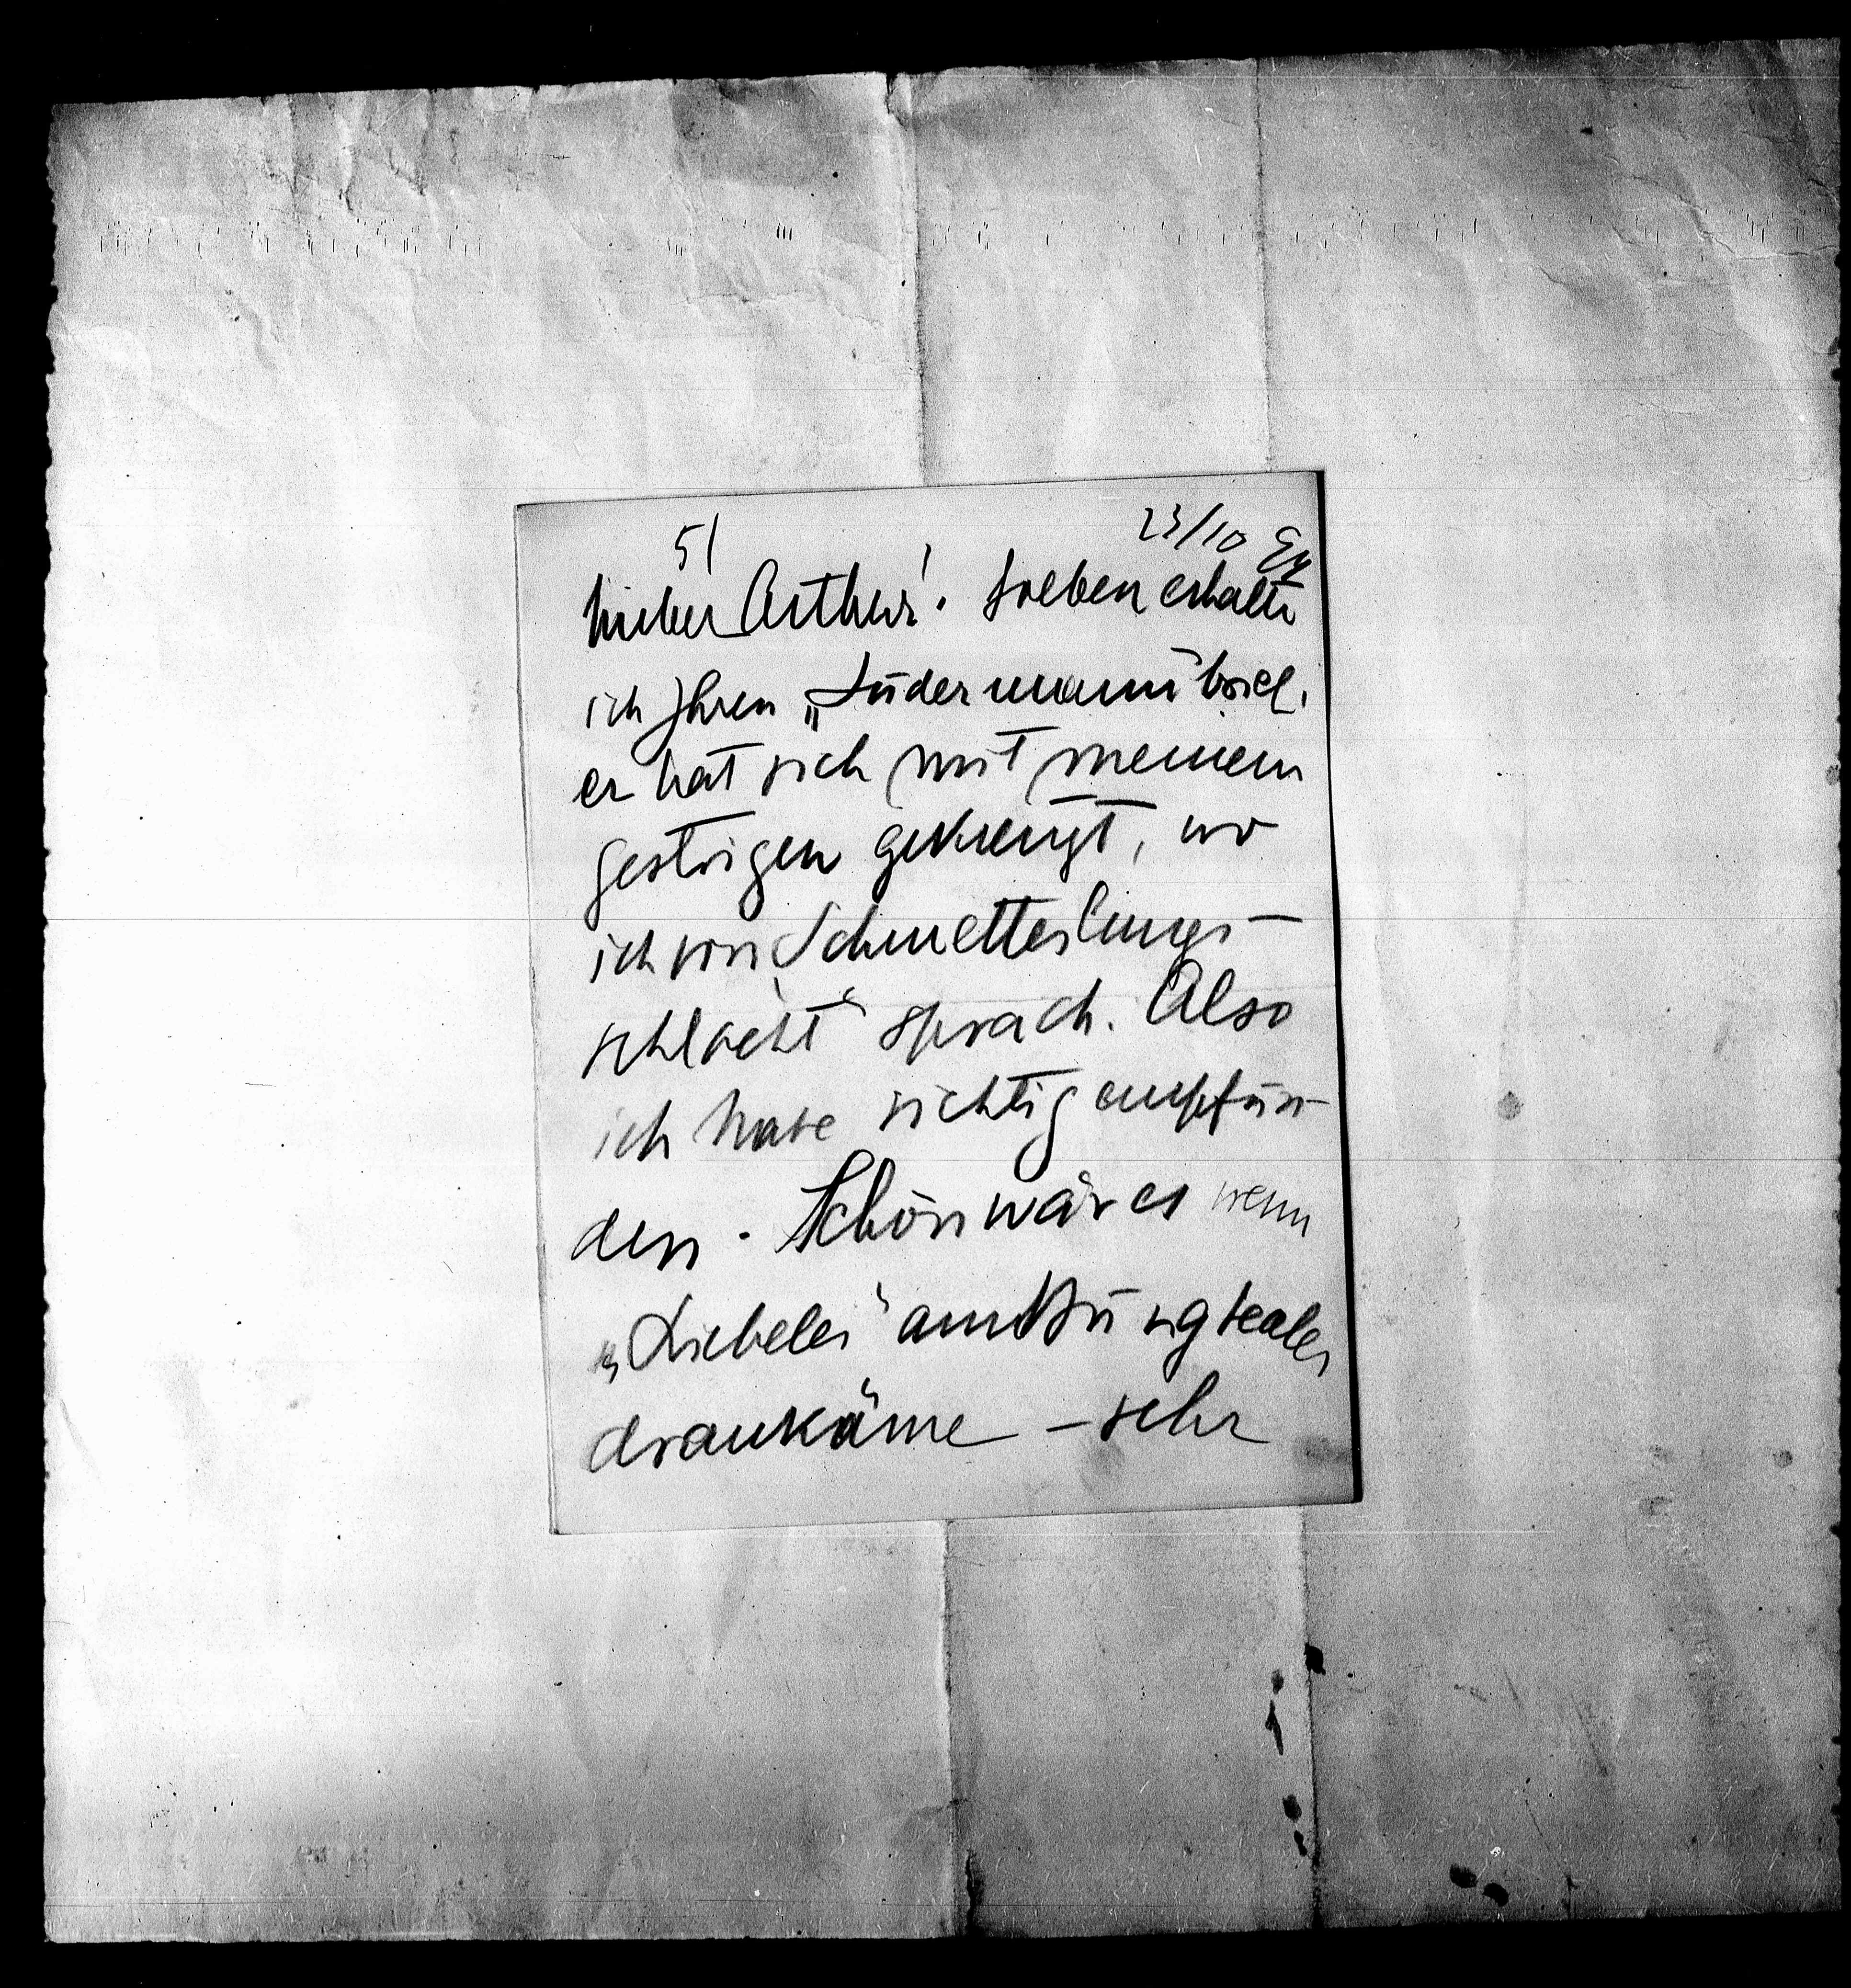 51 23/10 94
Lieber Arthur! Soeben erhalte
ich Ihren „Sudermann“ brief.
er hat sich mit meinem
gestrigen gekreuzt, wo
ich von Schmetterlings-
schlacht“ sprach. Also
ich habe richtig empfun-
den. Schön wär es wenn
„Liebelei“ am Burgteater
drankäme – sehr